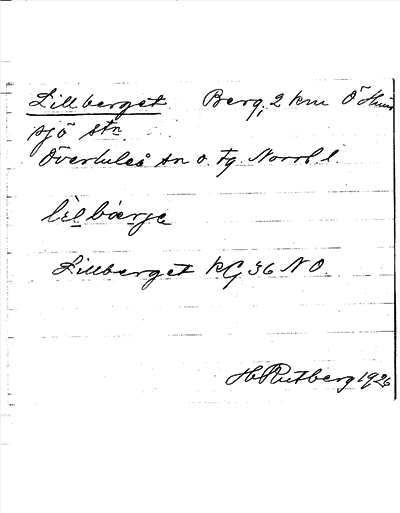 Lillberget Berg, 2 km Ö Hund
sjö stn
Överluleå sn o. tg. Norrb. l.
lìlbærje
Lillberget kG 36 NO.
H Rutberg 1926